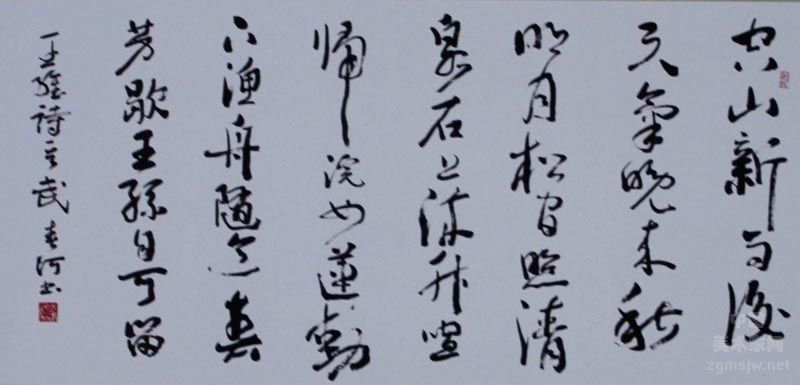 空山新雨後
天氣晚来秋
明月松間照清
泉石上流竹喧
歸浣女蓮動
下漁舟隨意春
芳歇王孫自可留
王維詩 春河书
美术家网
zgmsjw.net